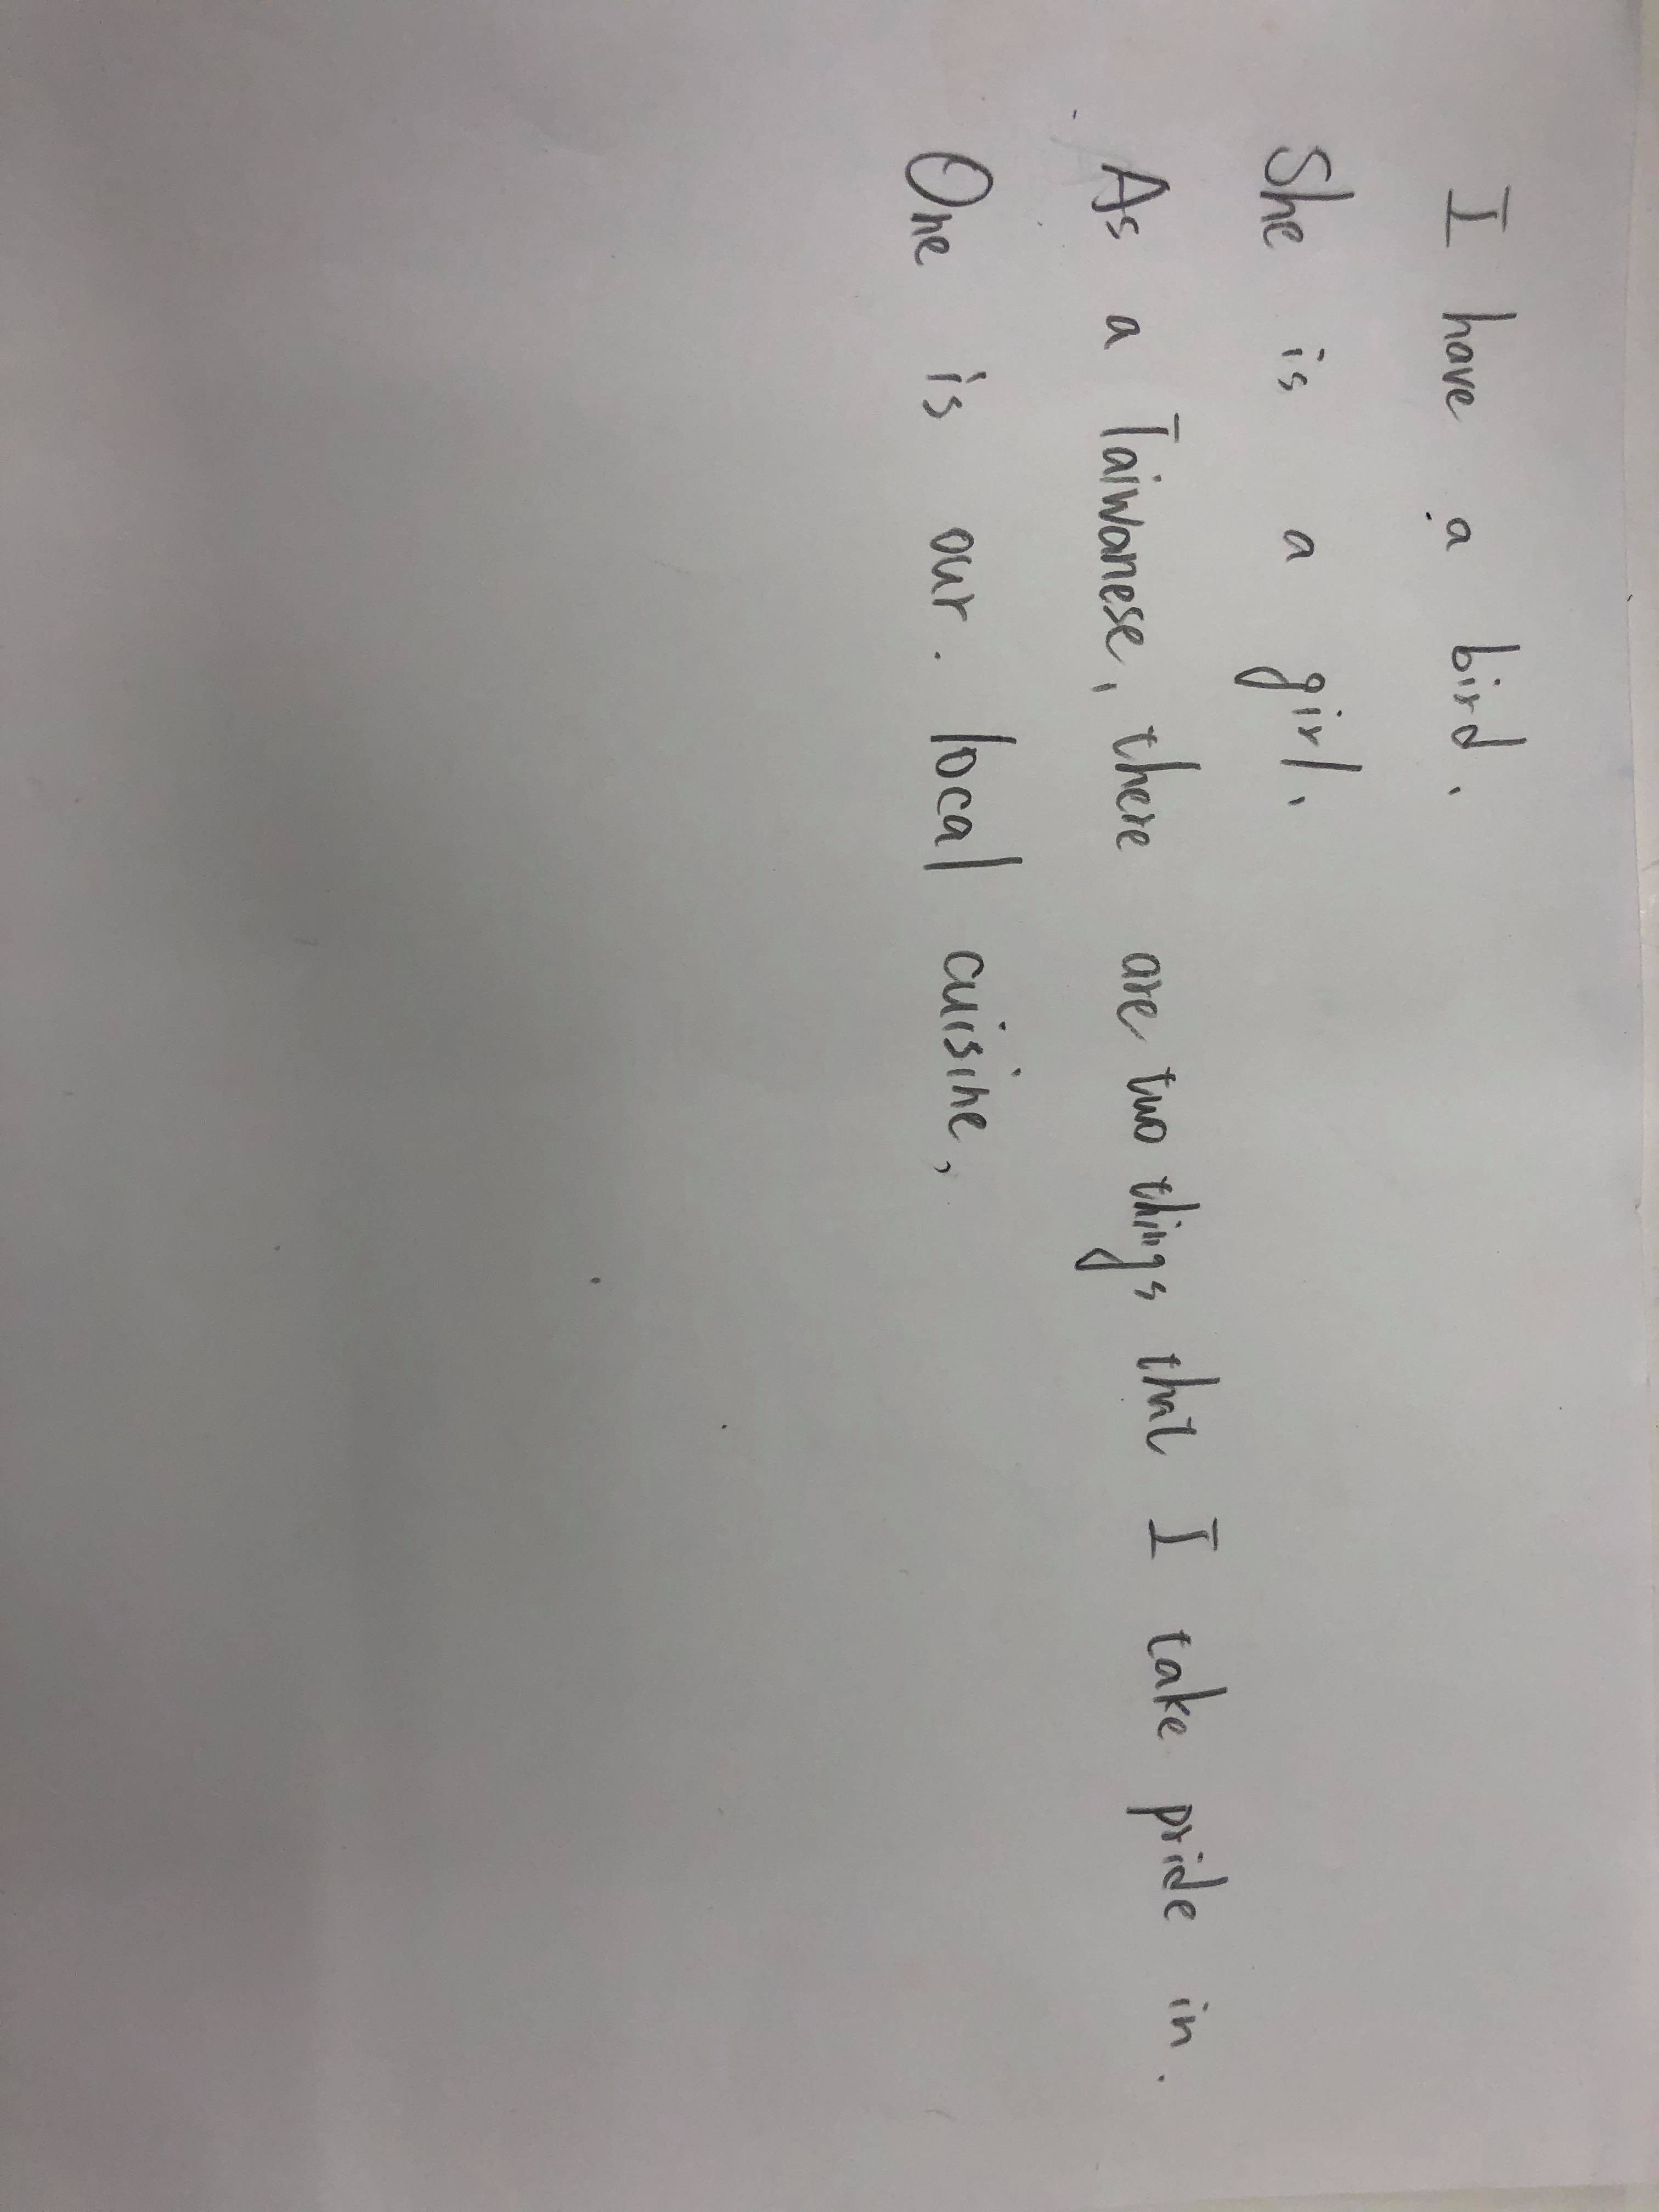 I have a bird.
She is a girl.
As a Taiwanese, there are two things that I take pride in.
One is our. local cuisine,